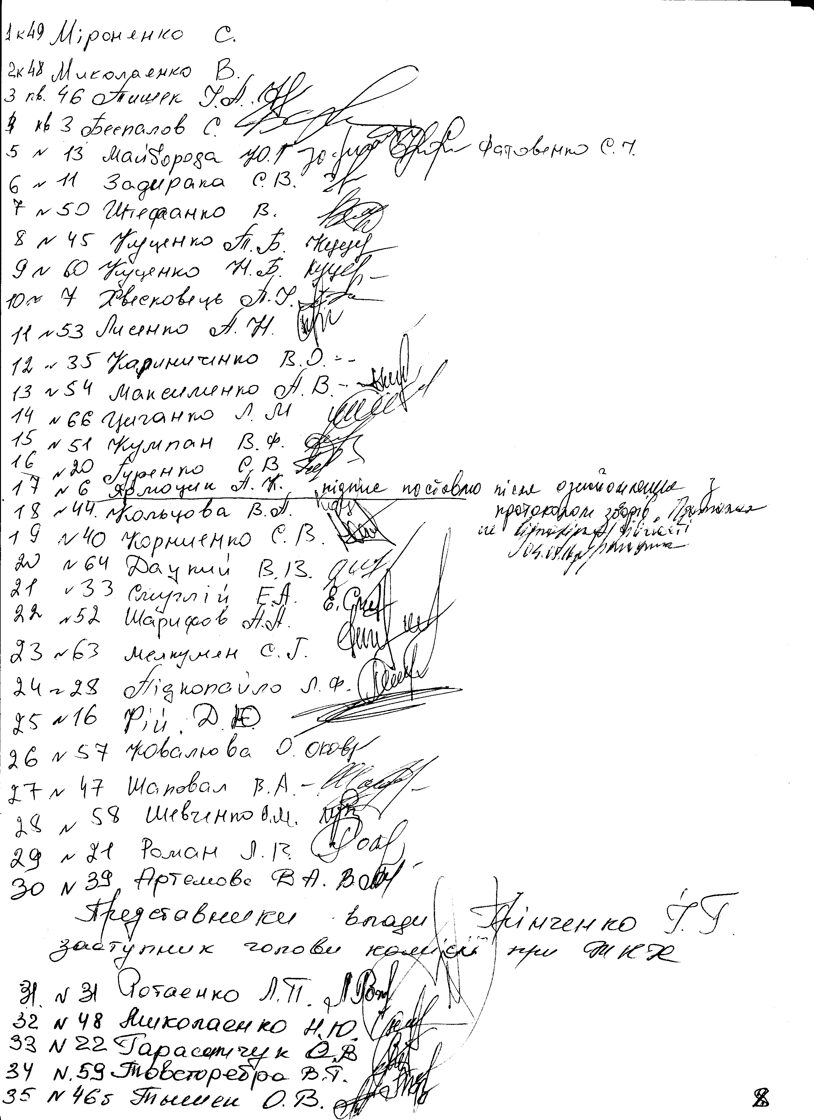 1 к 49 Міроненко С.
2 к 48 Миколаенко В.
3 кв. 46 Тишек І.А.
4 кв 3 Беспалов С.
5 № 13 Майборода Ю.Г Фатовенко С.І.
6 № 11 Задирака С.В.
7 № 50 Штефанко В.
8 № 45 Куценко Т.Б. Куце
9 № 60 Куценко Н.Б. Куце
10 № 7 Хвесковець А.І.
11 № 53 Лисенко А.Н.
12 № 35 Кариниченко В.О.
13 № 54 Максименко А.В.
14 № 66 Циганко Л.М
15 № 51 Кумпан В.Ф.
16 № 20 Гуренко С.В
17 № 6 Ярмощик А.К. підпис поставлю після ознайомлення з
протоколом зборів
18 № 44. Кольцова В.А.
19 № 40 Корниенко С.В.
20 № 64 Дацкий В.В.
21 № 33 Смуглій Е.А. Е.Смуг
22 № 52 Шарифов А.А.
23 № 63 Мелкумян С.Г.
24 № 28 Підкопайло Л.Ф.
25 № 16 Рій Д.Ю
26 № 57 Ковальова О.
27 № 47 Шаповал В.А.
28 № 58 Шевченко О.М.
29 № 21 Роман Л.В.
30 № 39 Артемова В А.
Представники влади Пінченко І.Г.
заступник голови комісії при
31. № 31 Потаенко Л.П.
32 № 48 Миколаенко Н.Ю.
33 № 22 Тарасенчук О.В
34 № 59 Товсторебра В.Г.
35 № 46б Тышек О.В.
8